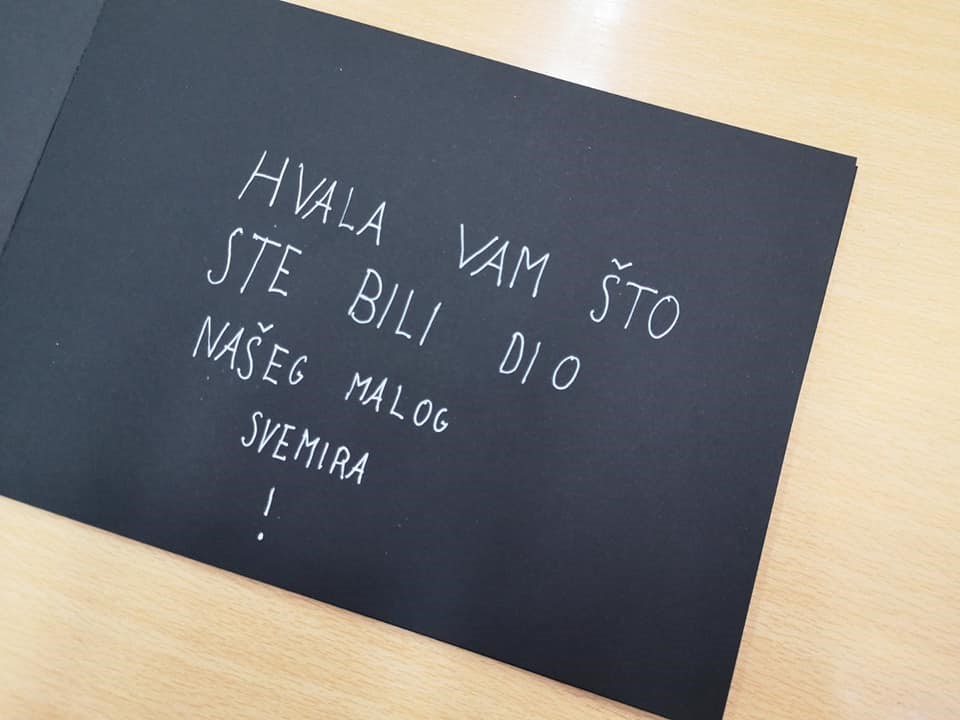 HVALA VAM ŠTO
STE BILI DIO
NAŠEG MALOG
SVEMIRA
!